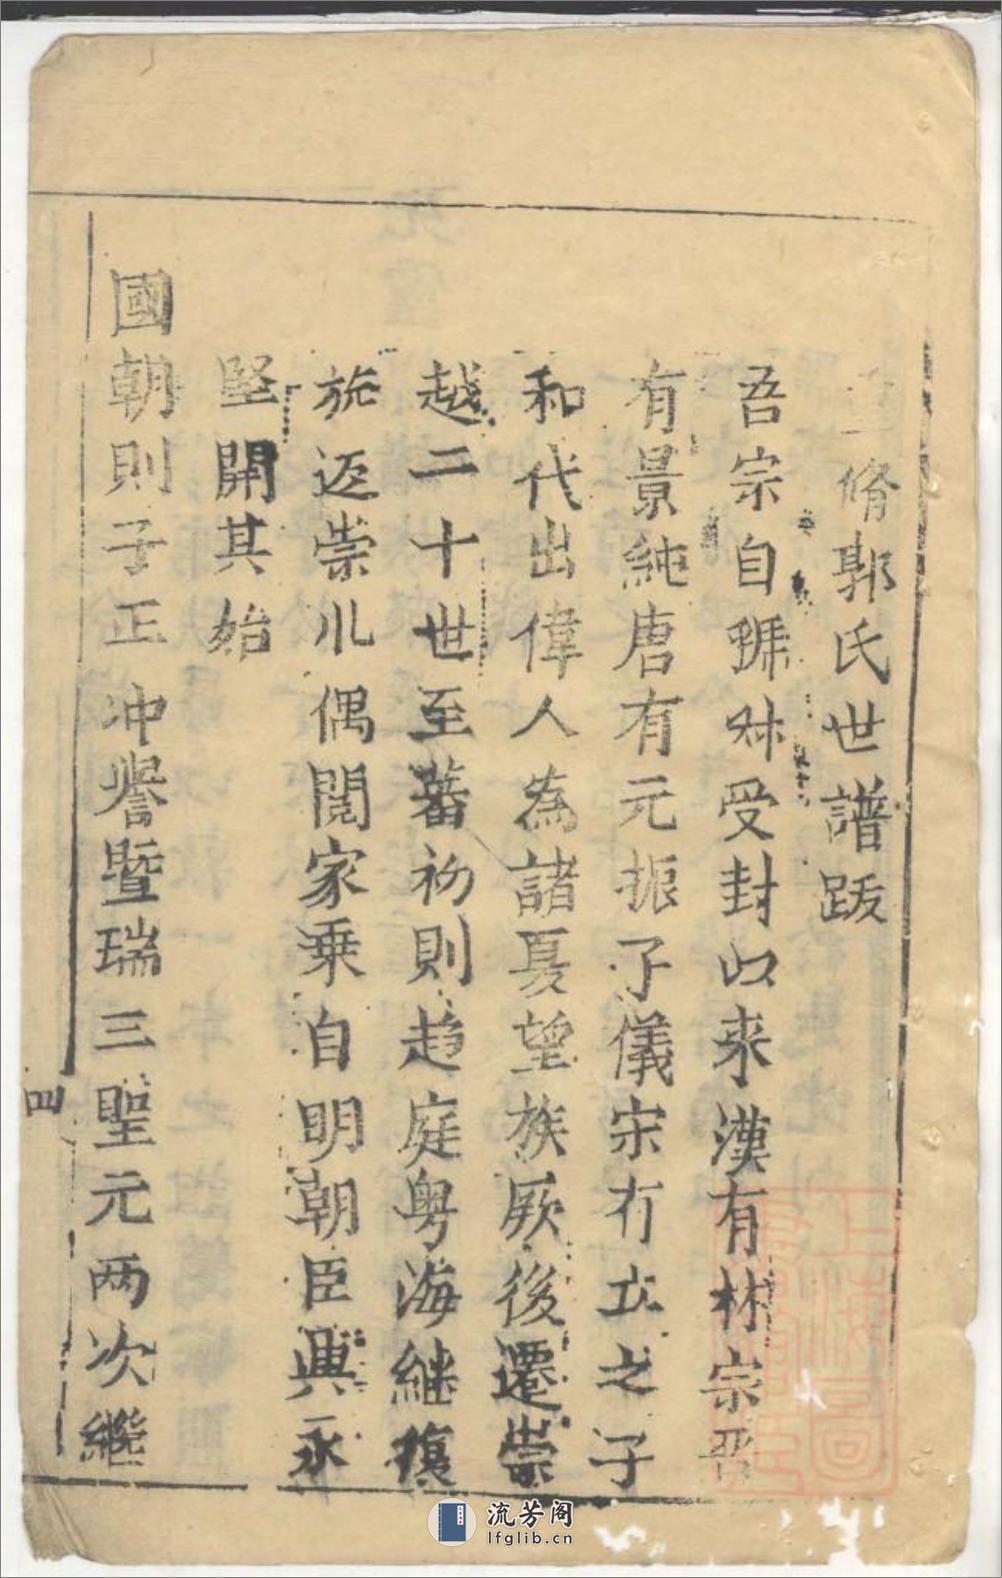 脩郭氏世譜跋
吾宗自虢叔受封以来漢有林宗晋
有景純唐有元振子儀宋有立之子
和代出偉人為諸夏望族厥後遷崇
越二十世至蕃初則趋庭粤海継復
旋返崇川偶閱家乗自明朝臣興永
堅開其始
國朝則子正冲譽暨瑞三聖元两次繼
四
流芳阁
lfglib.cn